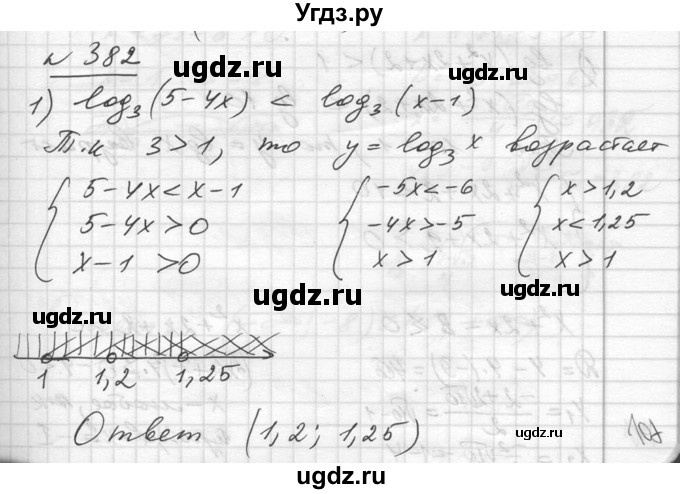 Угдз.ру
№ 382
ugdz.ru ugdz.ru
1) log₃(5-4x) < log₃(x-1)
Т.к 3>1, то y=log₃x возрастает
{ 5-4x<x-1 { -5x<-6 { x>1,2
5-4x>0 -4x>-5 x<1,25
x-1>0 x>1 x>1
ugdz.ru ugdz.ru
ugdz.ru
1 1,2 1,25
ugdz.ru
Ответ (1,2; 1,25)
ugdz.ru
ugdz.ru